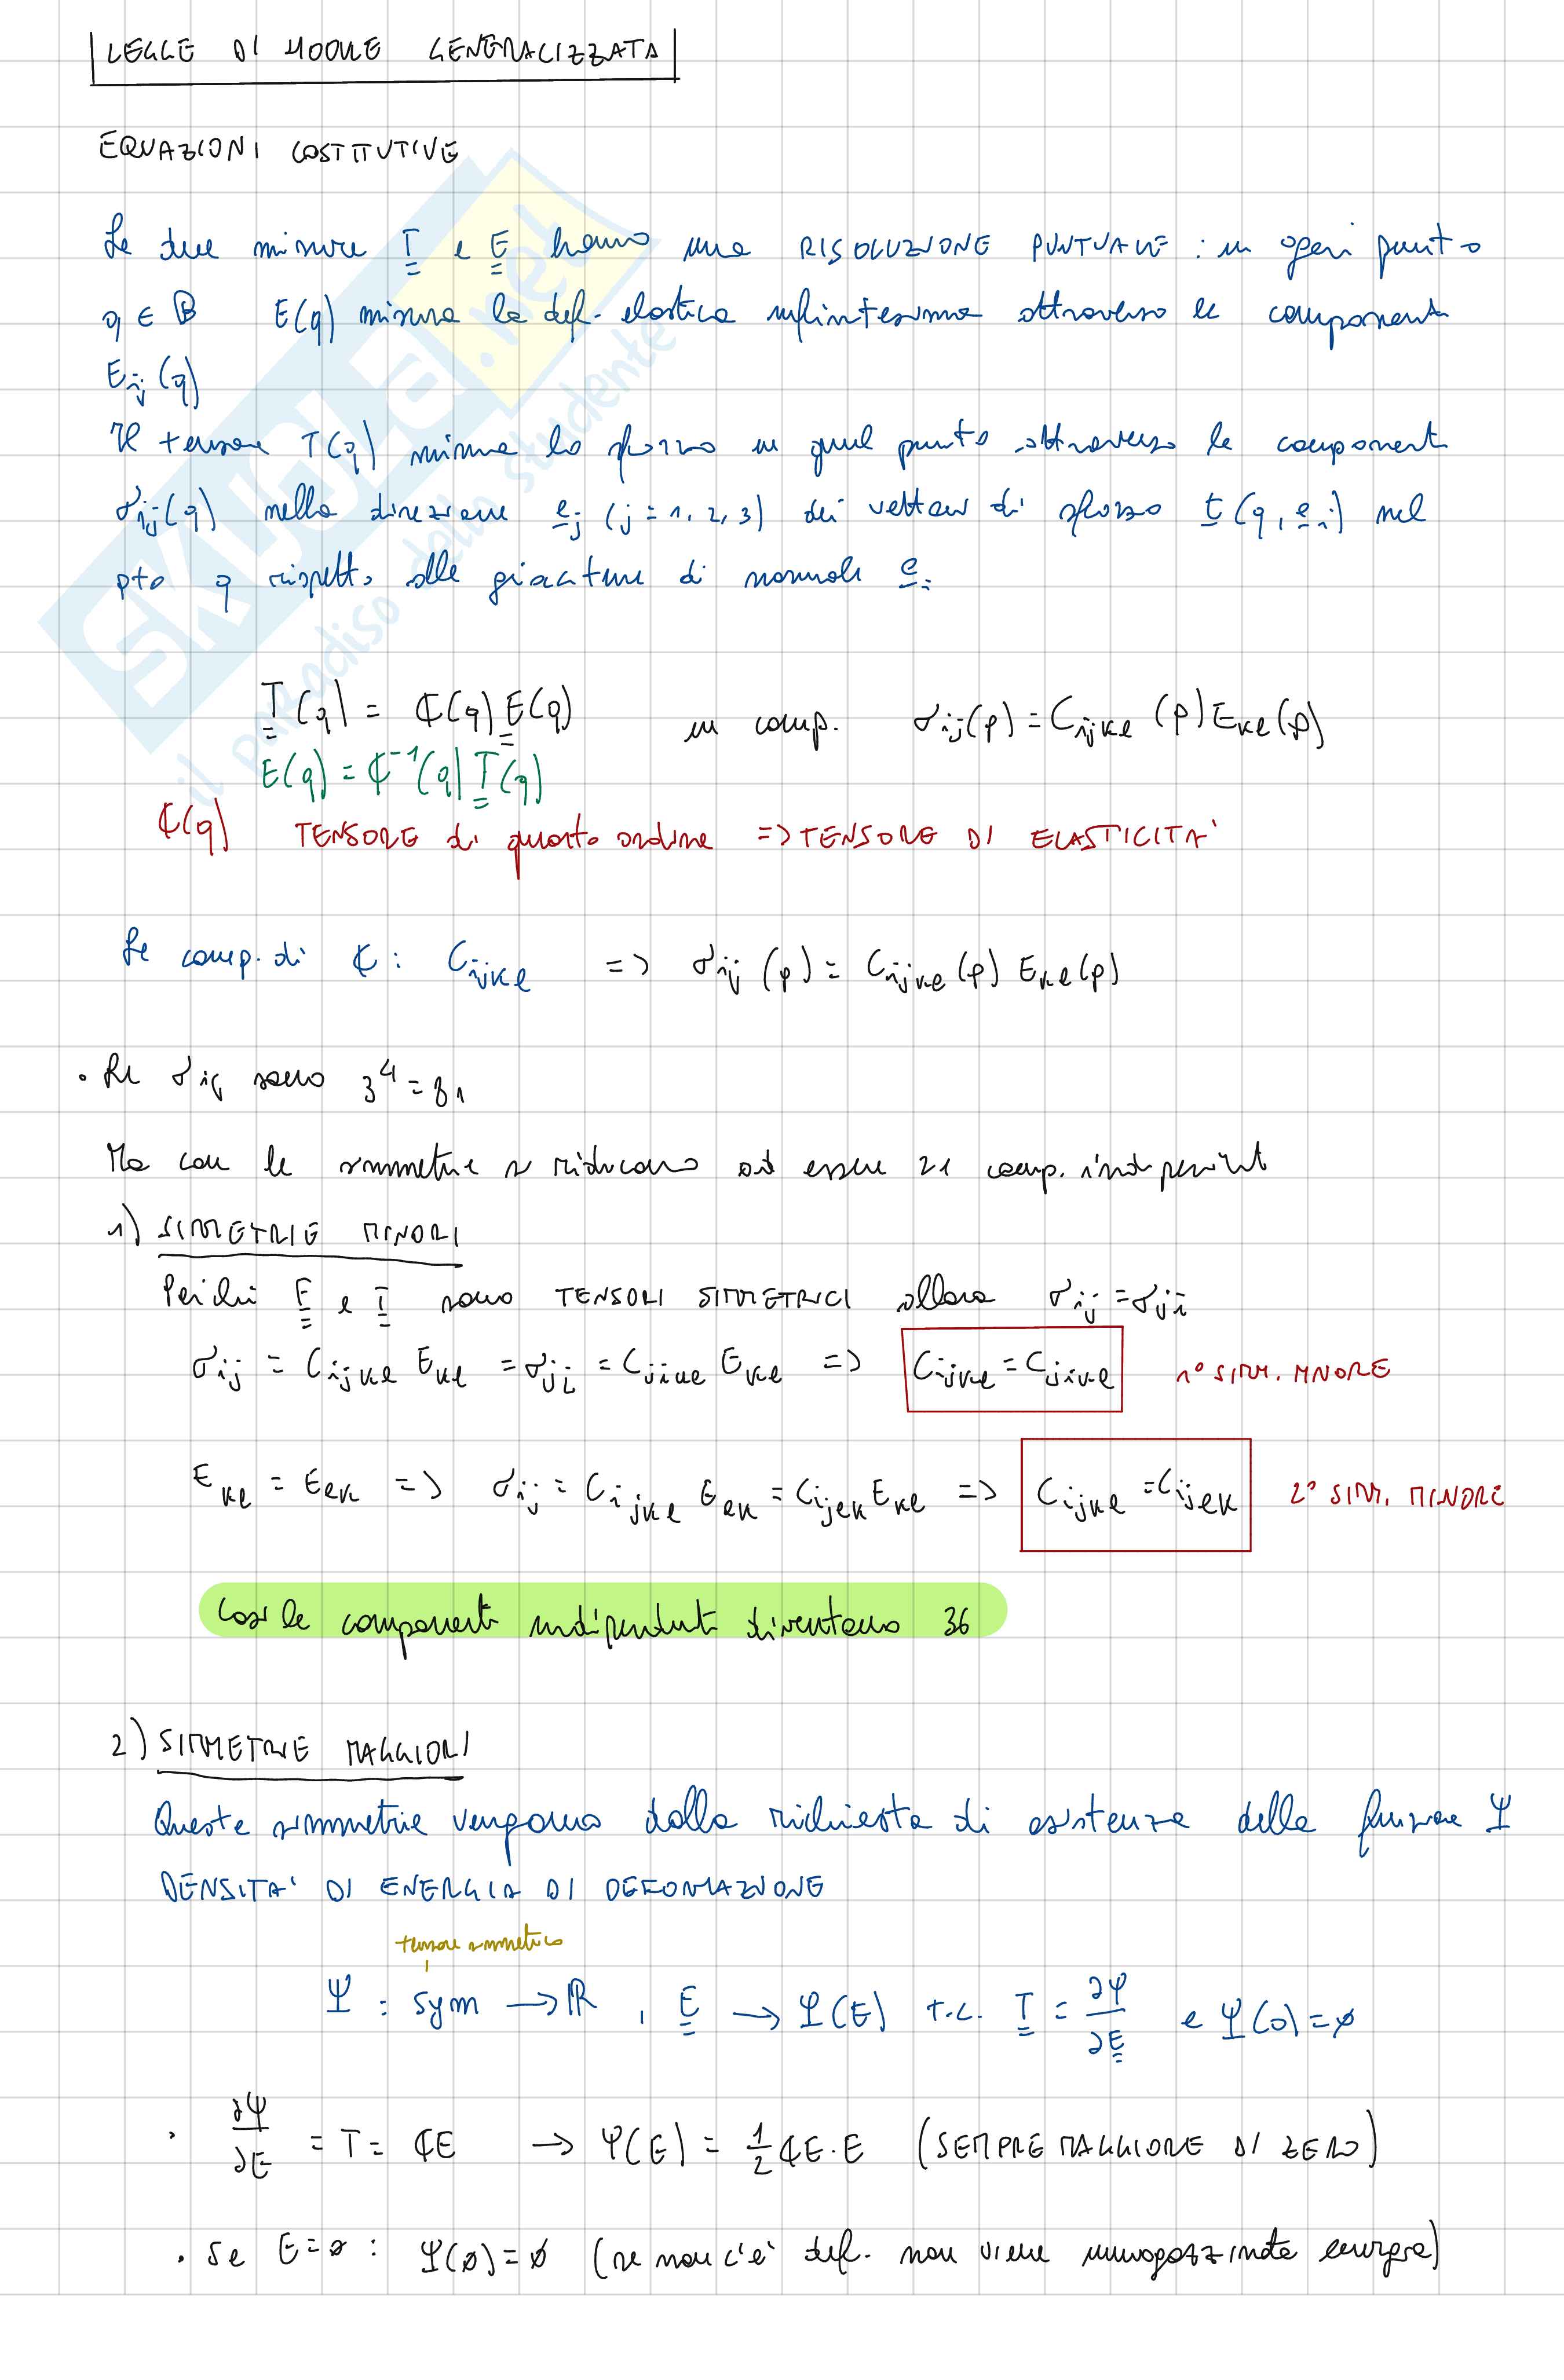 LEGGE DI HOOKE GENERALIZZATA
EQUAZIONI COSTITUTIVE
Le due misure T e E hanno una RISOLUZIONE PUNTUALE : in ogni punto
q ∈ B E(q) misura la def. elastica infinitesima attraverso le componenti
Eij (q)
Il tensore T(q) misura lo sforzo in quel punto attraverso le componenti
σij(q) nella direzione ej (j = 1, 2, 3) dei vettori di sforzo t (q, ei) nel
pto q rispetto alle giaciture di normale ei
T(q) = ℂ(q) E(q) in comp. σij(p) = Cijkl (p) Ekl(p)
E(q) = ℂ⁻¹(q) T(q)
ℂ(q) TENSORE di quarto ordine => TENSORE DI ELASTICITA'
Le comp. di ℂ : Cijkl => σij (p) = Cijkl (p) Ekl(p)
. Le σij sono 3⁴ = 81
Ma con le simmetrie si riducono ad essere 21 comp. indipendenti
1) SIMMETRIE MINORI
Perchè E e T sono TENSORI SIMMETRICI allora σij = σji
σij = Cijkl Ekl = σji = Cjikl Ekl => Cijkl = Cjikl 1° SIMM. MNORE
Ekl = Elk => σij = Cijkl Elk = Cijlk Ekl => Cijkl = Cijlk 2° SIMM. MINORE
Così le componenti indipendenti diventano 36
2) SIMMETRIE MAGGIORI
Queste simmetrie vengono dalla richiesta di esistenza della funzione Ψ
DENSITA' DI ENERGIA DI DEFORMAZIONE
tensore simmetrico
Ψ : sym → ℝ , E → Ψ(E) t.c. T = ∂Ψ/∂E e Ψ(0) = ∅
. ∂Ψ/∂E = T = ℂE → Ψ(E) = 1/2 ℂE · E (SEMPRE MAGGIORE DI ZERO)
. Se E = ∅ : Ψ(∅) = ∅ (se non c'è def. non viene immagazzinata energia)
SKUOLA.net
il paradiso dello studente